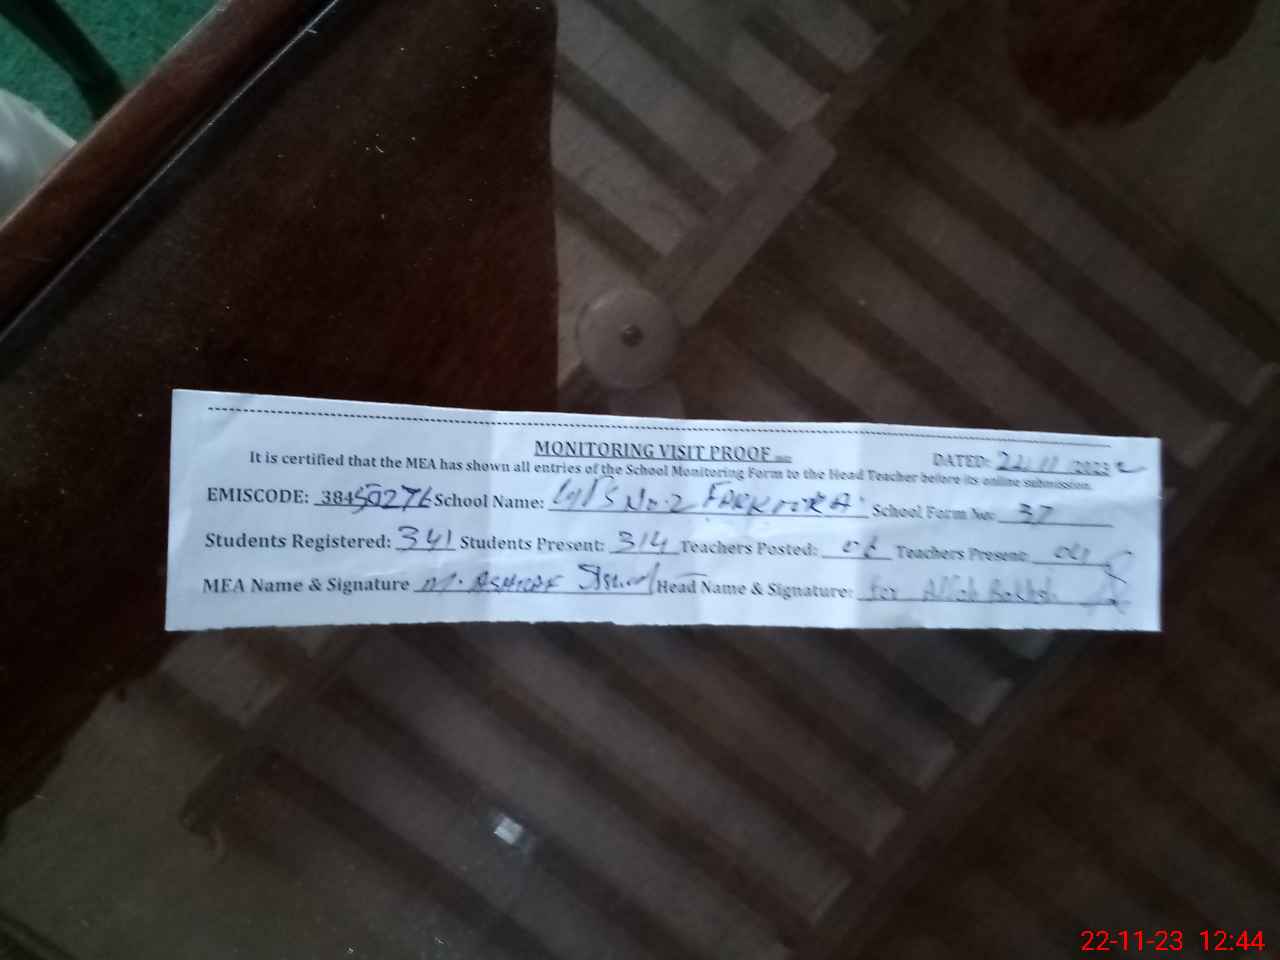 MONITORING VISIT PROOF
DATED: 22/11/2023
It is certified that the MEA has shown all entries of the School Monitoring Form to the Head Teacher before its online submission.
EMISCODE: 38450276 School Name: No.2 School Form No: 37
Students Registered: 341 Students Present: 314 Teachers Posted: Teachers Present:
MEA Name & Signature M. ASHRAF Head Name & Signature: for Allah Bakhsh
22-11-23 12:44